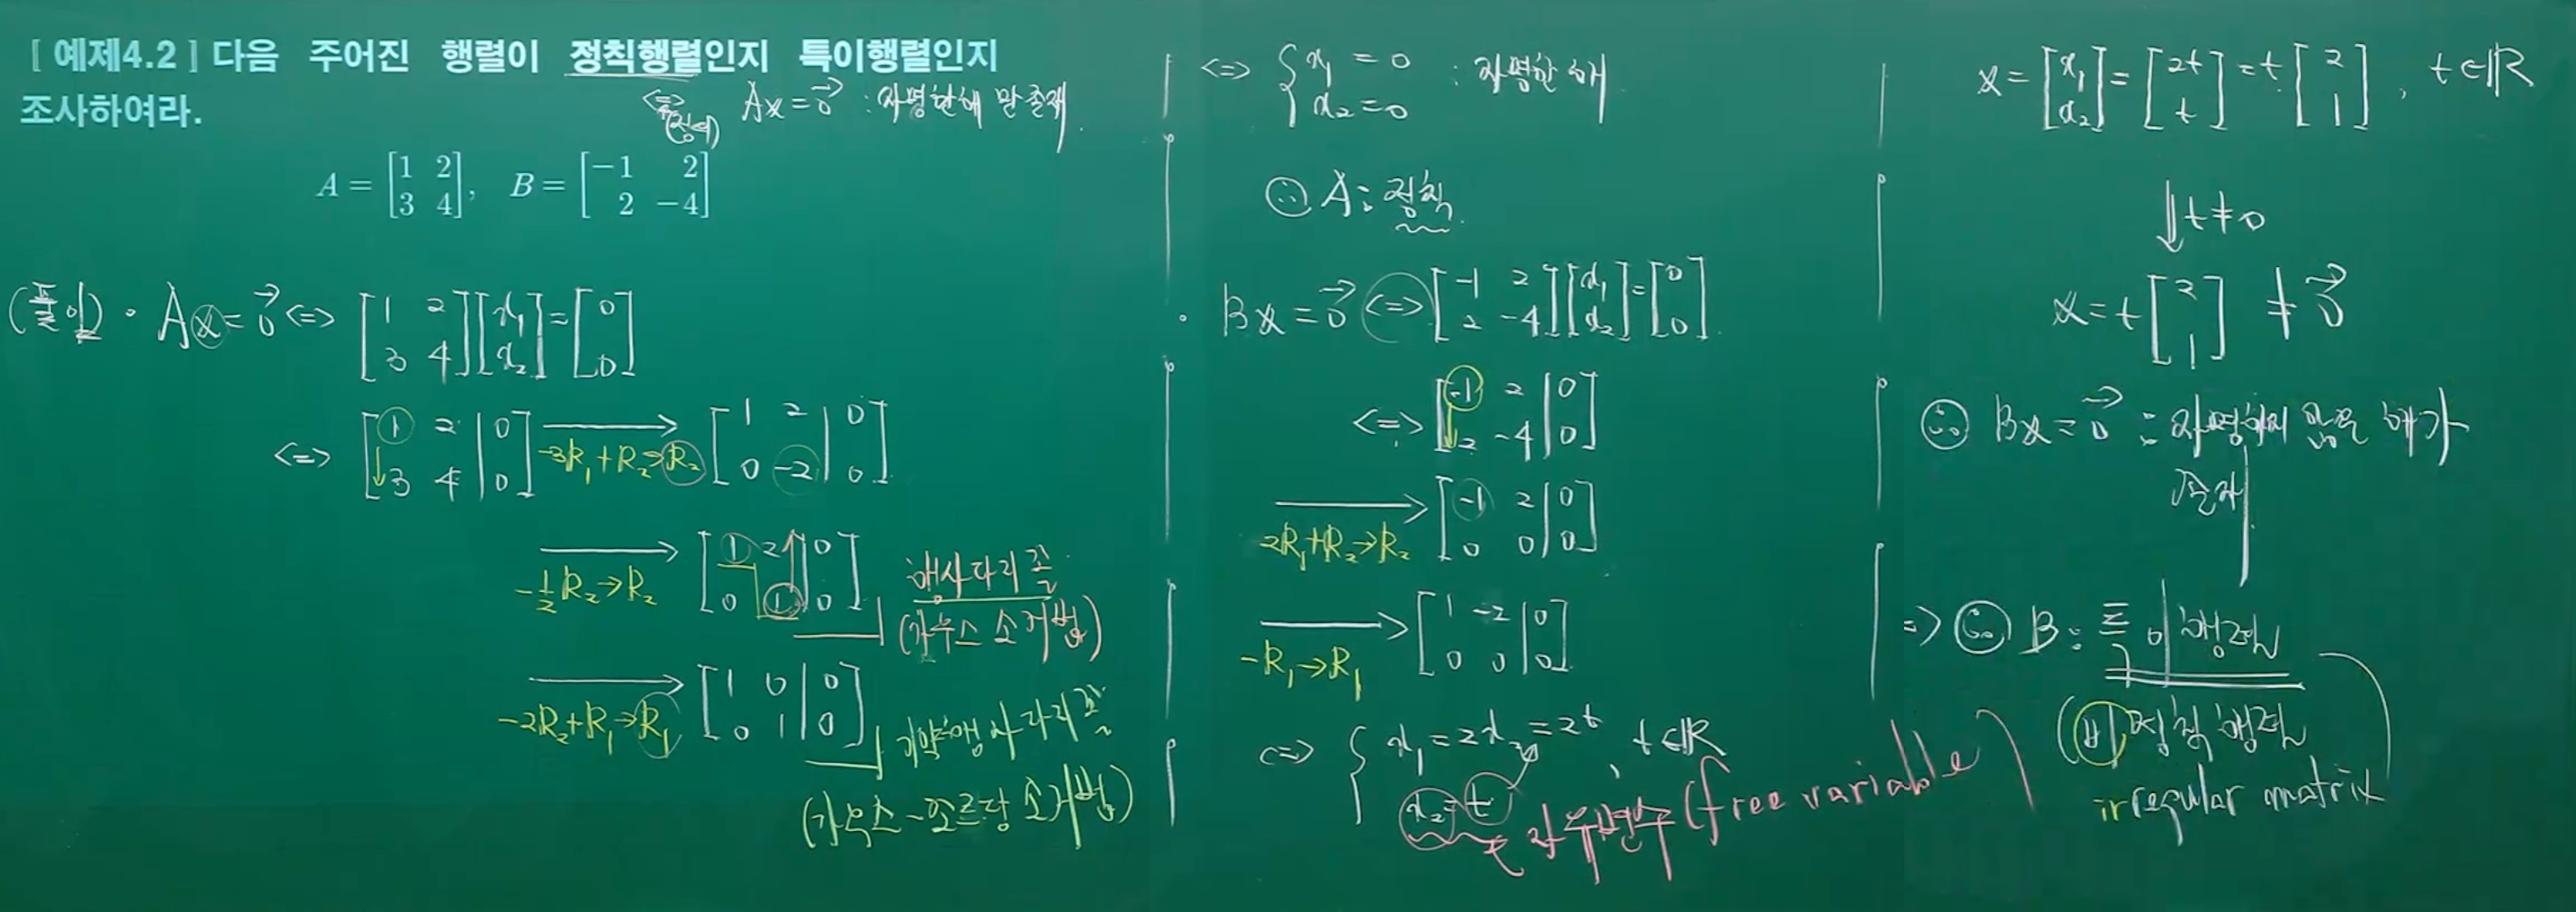 [ 예제4.2 ] 다음 주어진 행렬이 정칙행렬인지 특이행렬인지
조사하여라.
⇔ (정의) Ax = 0⃗ : 자명한해 만 존재.
A = [1 2; 3 4], B = [−1 2; 2 −4]
(풀이) · Ax = 0⃗ ⇔ [1 2; 3 4][x₁; x₂] = [0; 0]
⇔ [1 2 | 0; 3 4 | 0] → -3R₁+R₂→R₂ [1 2 | 0; 0 -2 | 0]
→ -1/2 R₂→R₂ [1 2 | 0; 0 1 | 0]
행사다리꼴
(가우스 소거법)
→ -2R₂+R₁→R₁ [1 0 | 0; 0 1 | 0]
기약행사다리꼴
(가우스-조르당 소거법)
⇔ { x₁ = 0, x₂ = 0 : 자명한 해
∴ A : 정칙.
· Bx = 0⃗ ⇔ [-1 2; 2 -4][x₁; x₂] = [0; 0]
⇔ [-1 2 | 0; 2 -4 | 0]
→ 2R₁+R₂→R₂ [-1 2 | 0; 0 0 | 0]
→ -R₁→R₁ [1 -2 | 0; 0 0 | 0]
⇔ { x₁ = 2x₂ = 2t, x₂ = t, t∈ℝ
자유변수 (free variable)
x = [x₁; x₂] = [2t; t] = t[2; 1], t∈ℝ
↓ t≠0
x = t[2; 1] ≠ 0⃗
∴ Bx = 0⃗ : 자명하지 않은 해가
존재
⇒ ∴ B : 특이행렬
(비정칙행렬
irregular matrix